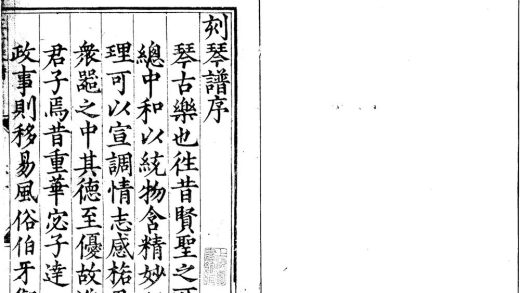 刻琴譜序
琴古樂也徃昔賢聖之
總中和以統物含精妙
理可以宣調情志感格
衆噐之中其德至優故
君子焉昔重華宓子達
政事則移易風俗伯牙